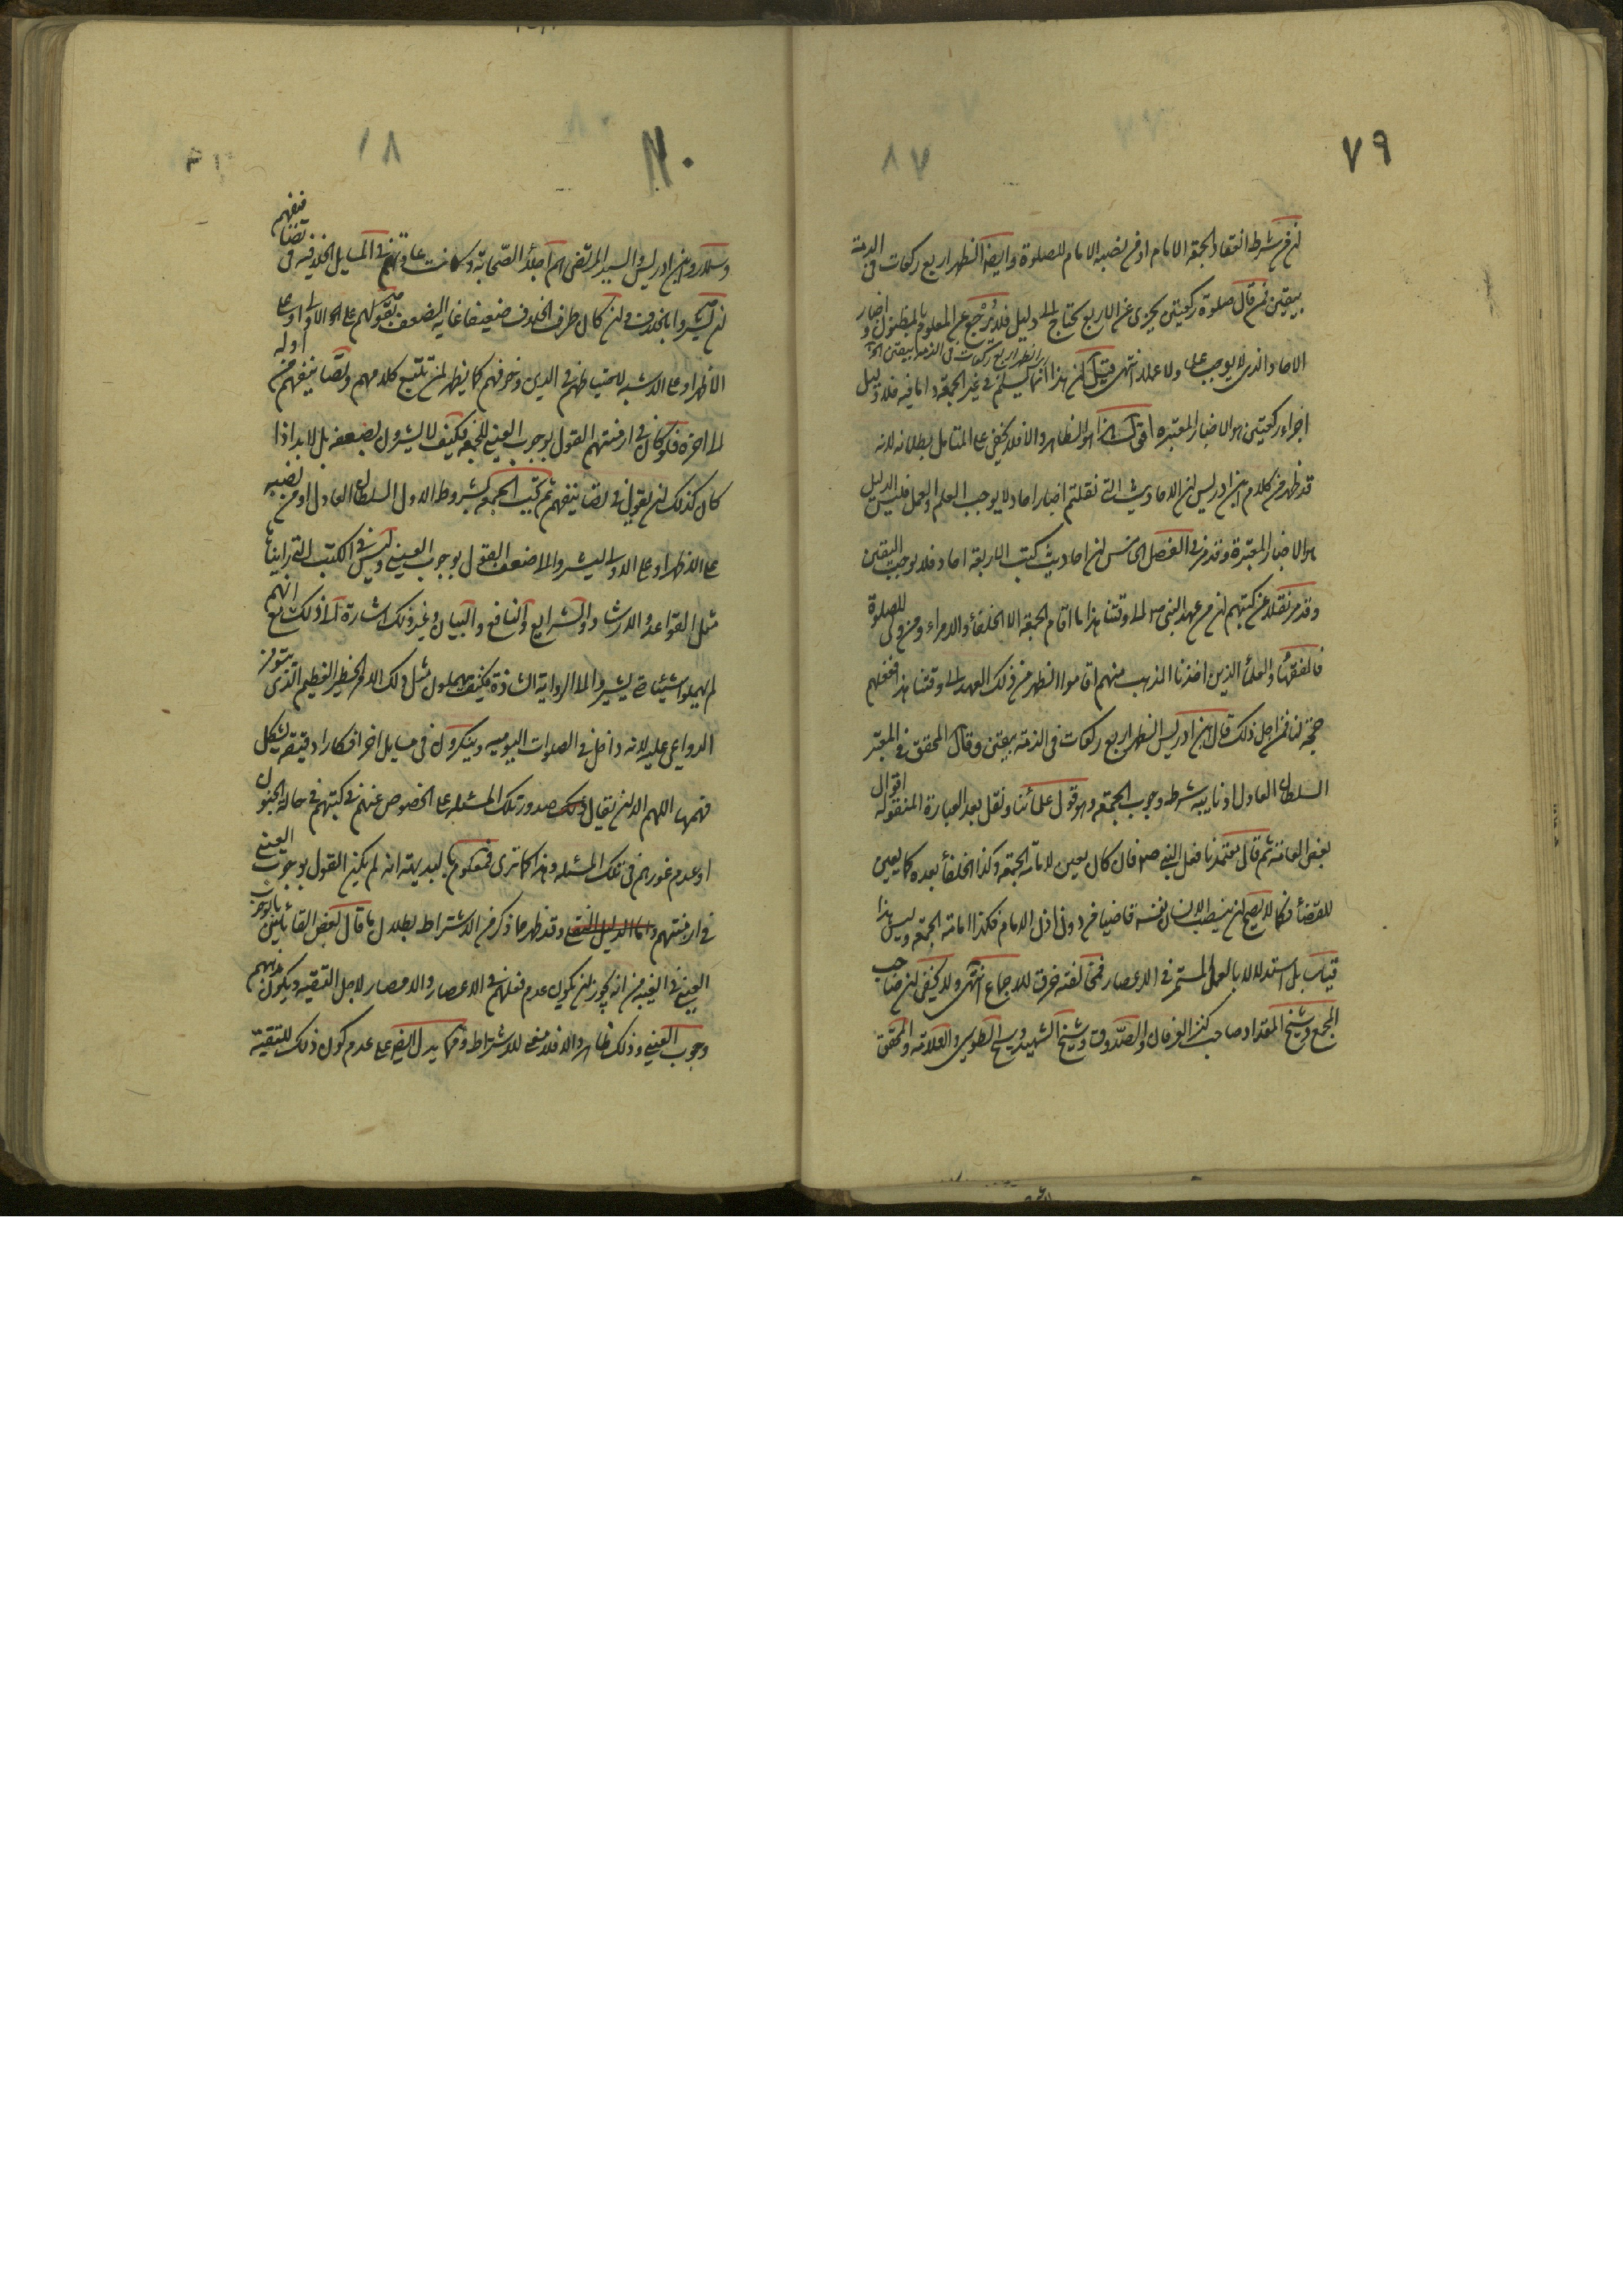 ٧٩
٨٧
ان من شرط انعقاد الجمعة الامام او من نصبه الامام للصلوة وايضا الظهر اربع ركعات فى الذمة
بيقين فمن قال صلوة ركعتين يجزى عن الاربع يحتاج الى دليل فلا يرجع عن المعلوم بالمظنون و اخبار
الاحاد الذى لا يوجب علما ولا عملا انتهى قيل ان هذا انما يسلم فى غير الجمعة واما فيه فلا ودليل
الظهر اربع ركعات فى الذمة بيقين
اجزاء ركعتين هو الاخبار المعتبرة هو الظاهر والا فلا يخفى على المتامل بطلانه لانه
قد ظهر من كلام ابن ادريس ان الاحاديث التى نقلتم اخبار احاد لا يوجب العلم والعمل فليس الدليل
هو الاخبار المعتبرة وقد مر فى الفصل الخامس ان احاديث كتب الاربعة احاد فلا يوجب اليقين
وقد مر نقلا عن كتبهم ان من عهد النبى ص الى وقتنا هذا ما اقام الجمعة الا الخلفاء والامراء ومن ولى للصلوة
فالفقهاء والعلماء الذين اخذنا المذهب منهم اقاموا الظهر من ذلك العهد الى وقتنا هذا ففعلهم
حجة لنا فمن اجل ذلك قال ابن ادريس الظهر اربع ركعات فى الذمة بيقين وقال المحقق فى المعتبر
السلطان العادل او نايبه شرط وجوب الجمعة وهو قول علمائنا ونقل بعد العبارة المنقولة اقوال
بعض العامة ثم قال معتمدنا فعل النبى ص فانه كان يعين لامامة الجمعة وكذا الخلفاء بعده كما يعين
للقضاء فكما لا يصح ان ينصب الانسان نفسه قاضيا من دون اذن الامام فكذا امامة الجمعة وليس هذا
قياسا بل استدلالا بالعمل المستمر فى الاعصار فمخالفته خرق للاجماع انتهى ولا يخفى ان صاحب
المجمع وشيخ المقداد صاحب كنز العرفان والصدوق وشيخ الشهيد وشيخ الطوسى والعلامة والمحقق
٨٠
١٨
وسلار وابن ادريس والسيد المرتضى هم اجلاء الصحابة وكانت عادتهم فى المسايل الخلافية فى تصانيفهم
ان يشيروا بالخلاف وان كان طرف الخلاف ضعيفا غاية الضعف بقولهم على الاولى او على
الاظهر او على الاشبه لاحتياطهم فى الدين وخوفهم كما يظهر لمن تتبع كلامهم وتصانيفهم من اوله
الى اخره فلو كان فى ازمنتهم القول بوجوب العينى للجمعة فكيف لا يشيرون بضعفه بل لابد اذا
كان كذلك ان يقولون فى تصانيفهم ثم يجب الجمعة بشروط الاول السلطان العادل او من نصبه
على الاظهر او على الاولى ليشيروا الى ضعف القول بوجوب العينى وليس فى الكتب التى رايناها
مثل القواعد والارشاد والشرايع والنافع والبيان وغير ذلك اشارة الى ذلك مع انهم
لم يهملوا شيئا حتى يشيروا الى الرواية الشاذة فكيف يهملون مثل ذلك الامر الخطير العظيم الذى يتوفر
الدواعى عليه لانه داخل فى الصلوات اليومية ويتكرون فى مسايل اخر افكارا دقيقة يشكل
فهمها اللهم الا ان يقال صدور تلك المسئلة على الخصوص عنهم فى كتبهم فى حالة الجنون
او عدم غورهم فى تلك المسئلة وهذا كما ترى فمعلوم بالبديهة انه لم يكن القول بوجوب العينى
فى ازمنتهم وقد ظهر مما ذكر من الاشتراط بطلان ما قال بعض القائلين بالوجوب
العينى فى الغيبة من انه يجوز ان يكون عدم فعلهم فى الاعصار والامصار لاجل التقية ويكون مذهبهم
وجوب العينى وذلك ظاهر والا فلا معنى للاشتراط ومما يدل ايضا على عدم كون ذلك للتقية